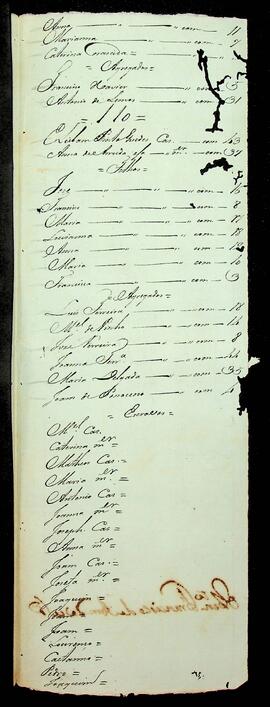 Anna — " com — 11
Marianna — " com — 9
Caterina — " com —
= Agregados =
Francisco Xavier — " com — 5
Antonio de Lemos — " com — 31
= 110 =
Estevam Pinto Cas. — com — 43
Anna de Arruda — mer — com — 37
= Filhos =
Joze — " com — 15
Francisco — " com — 8
Maria — " com — 17
Lucianna — " com — 18
Anna — " com —
Maria — " com — 16
Francisca — " com — 3
= Agregados =
Luis Ferreira — " com — 18
Mel de Pinho — " com — 44
Joze Ferreira — " com — 8
Joanna — " com — 44
Maria Delgada — " com — 35
Joam de — com — 4
= Escravos =
Mel Cas.
Caterina mer
Matheus Cas. =
Maria mer =
Antonio Cas =
Joanna mer =
Joseph Cas. =
Anna mer =
Joam Cas. =
Josefa mer =
Joaquim =
Joze =
Joam =
Lourenço =
Caetanno =
Pedro =
Joaquim =